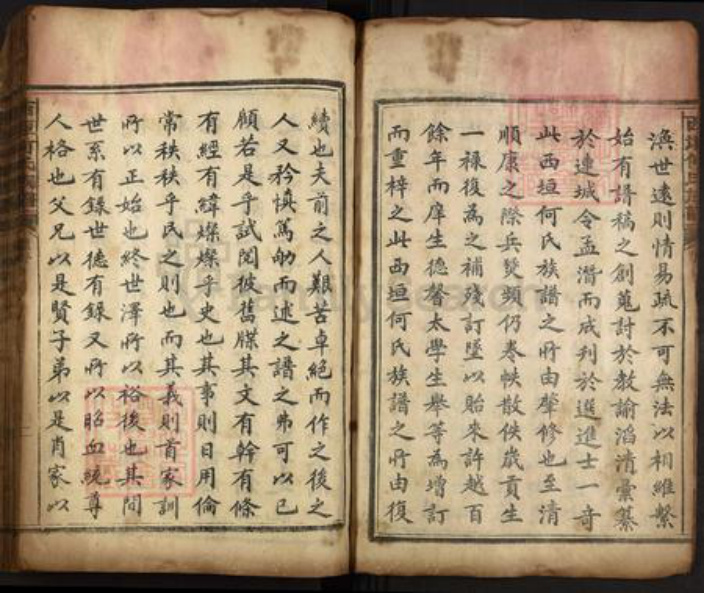 渙世遠則情易疏不可無法以相維繫
始有譜稿之創蒐討於教諭滔清彙纂
於連城令孟潛而成判於選進士一奇
此西垣何氏族譜之所由肇修也至清
順康之際兵燹頻仍卷帙散佚歲貢生
一祿復為之補殘訂墜以貽來許越百
餘年而庠生德馨太學生舉等為增訂
而重梓之此西垣何氏族譜之所由復
續也夫前之人艱苦卓絕而作之後之
人又矜慎篤劬而述之譜之弗可以已
顧若是乎試閱彼舊牒其文有幹有條
有經有緯燦燦乎史也其事則日用倫
常秩秩乎民之則也而其義則首家訓
所以正始也終世澤所以裕後也其間
世系有錄世德有錄又所以昭血統尊
人格也父兄以是賢子弟以是肖家以